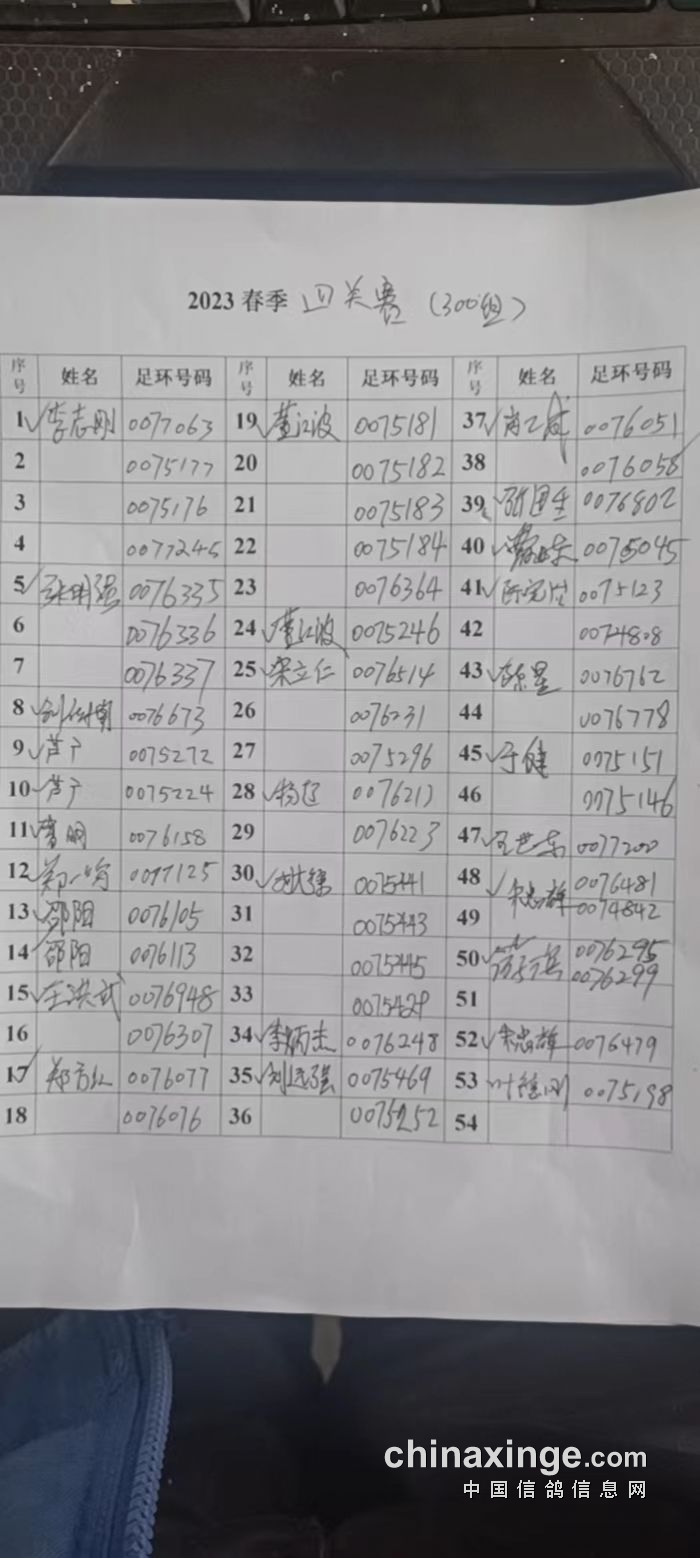 2023 春季 回关赛 (300组)
序号 姓名 足环号码 序号 姓名 足环号码 序号 姓名 足环号码
1 李志刚 0077063 19 董江波 0075181 37 0076051
2 0075177 20 0075182 38 0076058
3 0075176 21 0075183 39 0076802
4 0077245 22 0075184 40 0075045
5 张明强 0076335 23 0076364 41 0075123
6 0076336 24 董江波 0075246 42 0074808
7 0076337 25 宋立仁 0076514 43 0076762
8 0076673 26 0076231 44 0076778
9 芦广 0075272 27 0075296 45 于健 0075151
10 芦广 0075224 28 0076217 46 0075146
11 0076158 29 0076223 47 王世东 0077200
12 0077125 30 0075441 48 宋忠雄 0076481
13 邵阳 0076105 31 0075443 49 0074842
14 邵阳 0076113 32 0075445 50 0076295
0076299
15 王洪武 0076948 33 0075429 51
16 0076307 34 李炳杰 0076248 52 宋忠雄 0076479
17 郑方红 0076077 35 刘远强 0075469 53 0075198
18 0076076 36 0075252 54
chinaxinge.com
中国信鸽信息网